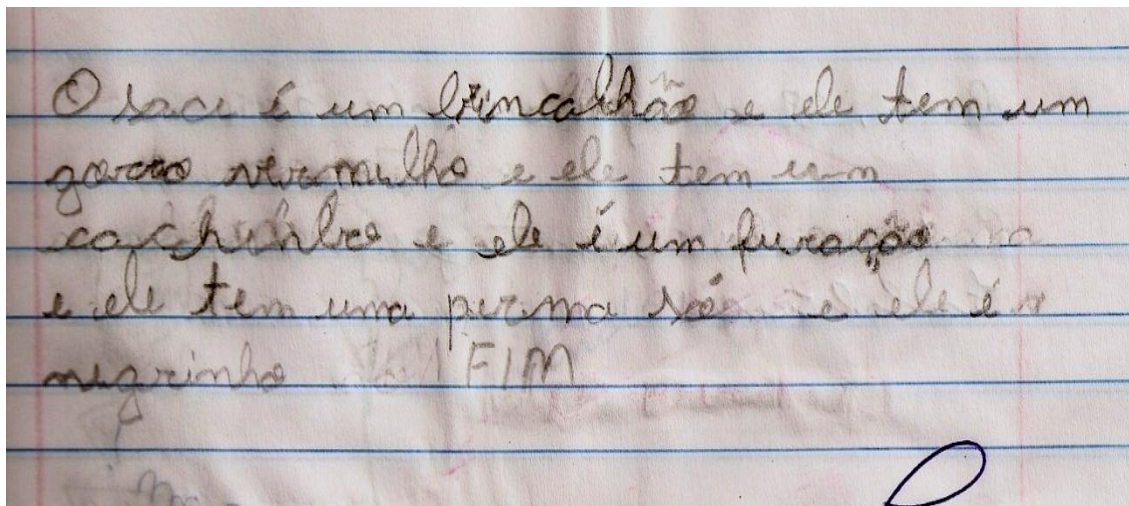 O saci é um brincalhão e ele tem um
gorro vermelho e ele tem um
cachinbo e ele é um furacão
e ele tem uma perna só e ele é
negrinho FIM